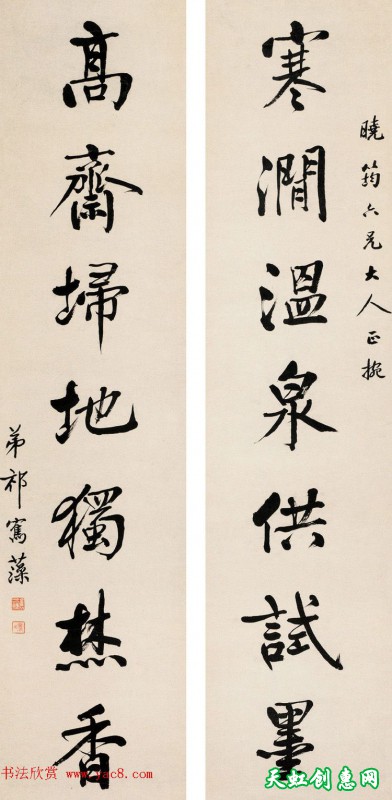 曉筠六兄大人正挽
寒澗溫泉供試墨
高齋埽地獨焚香
弟祁寯藻
书法欣赏
ac8.com
天虹创意网